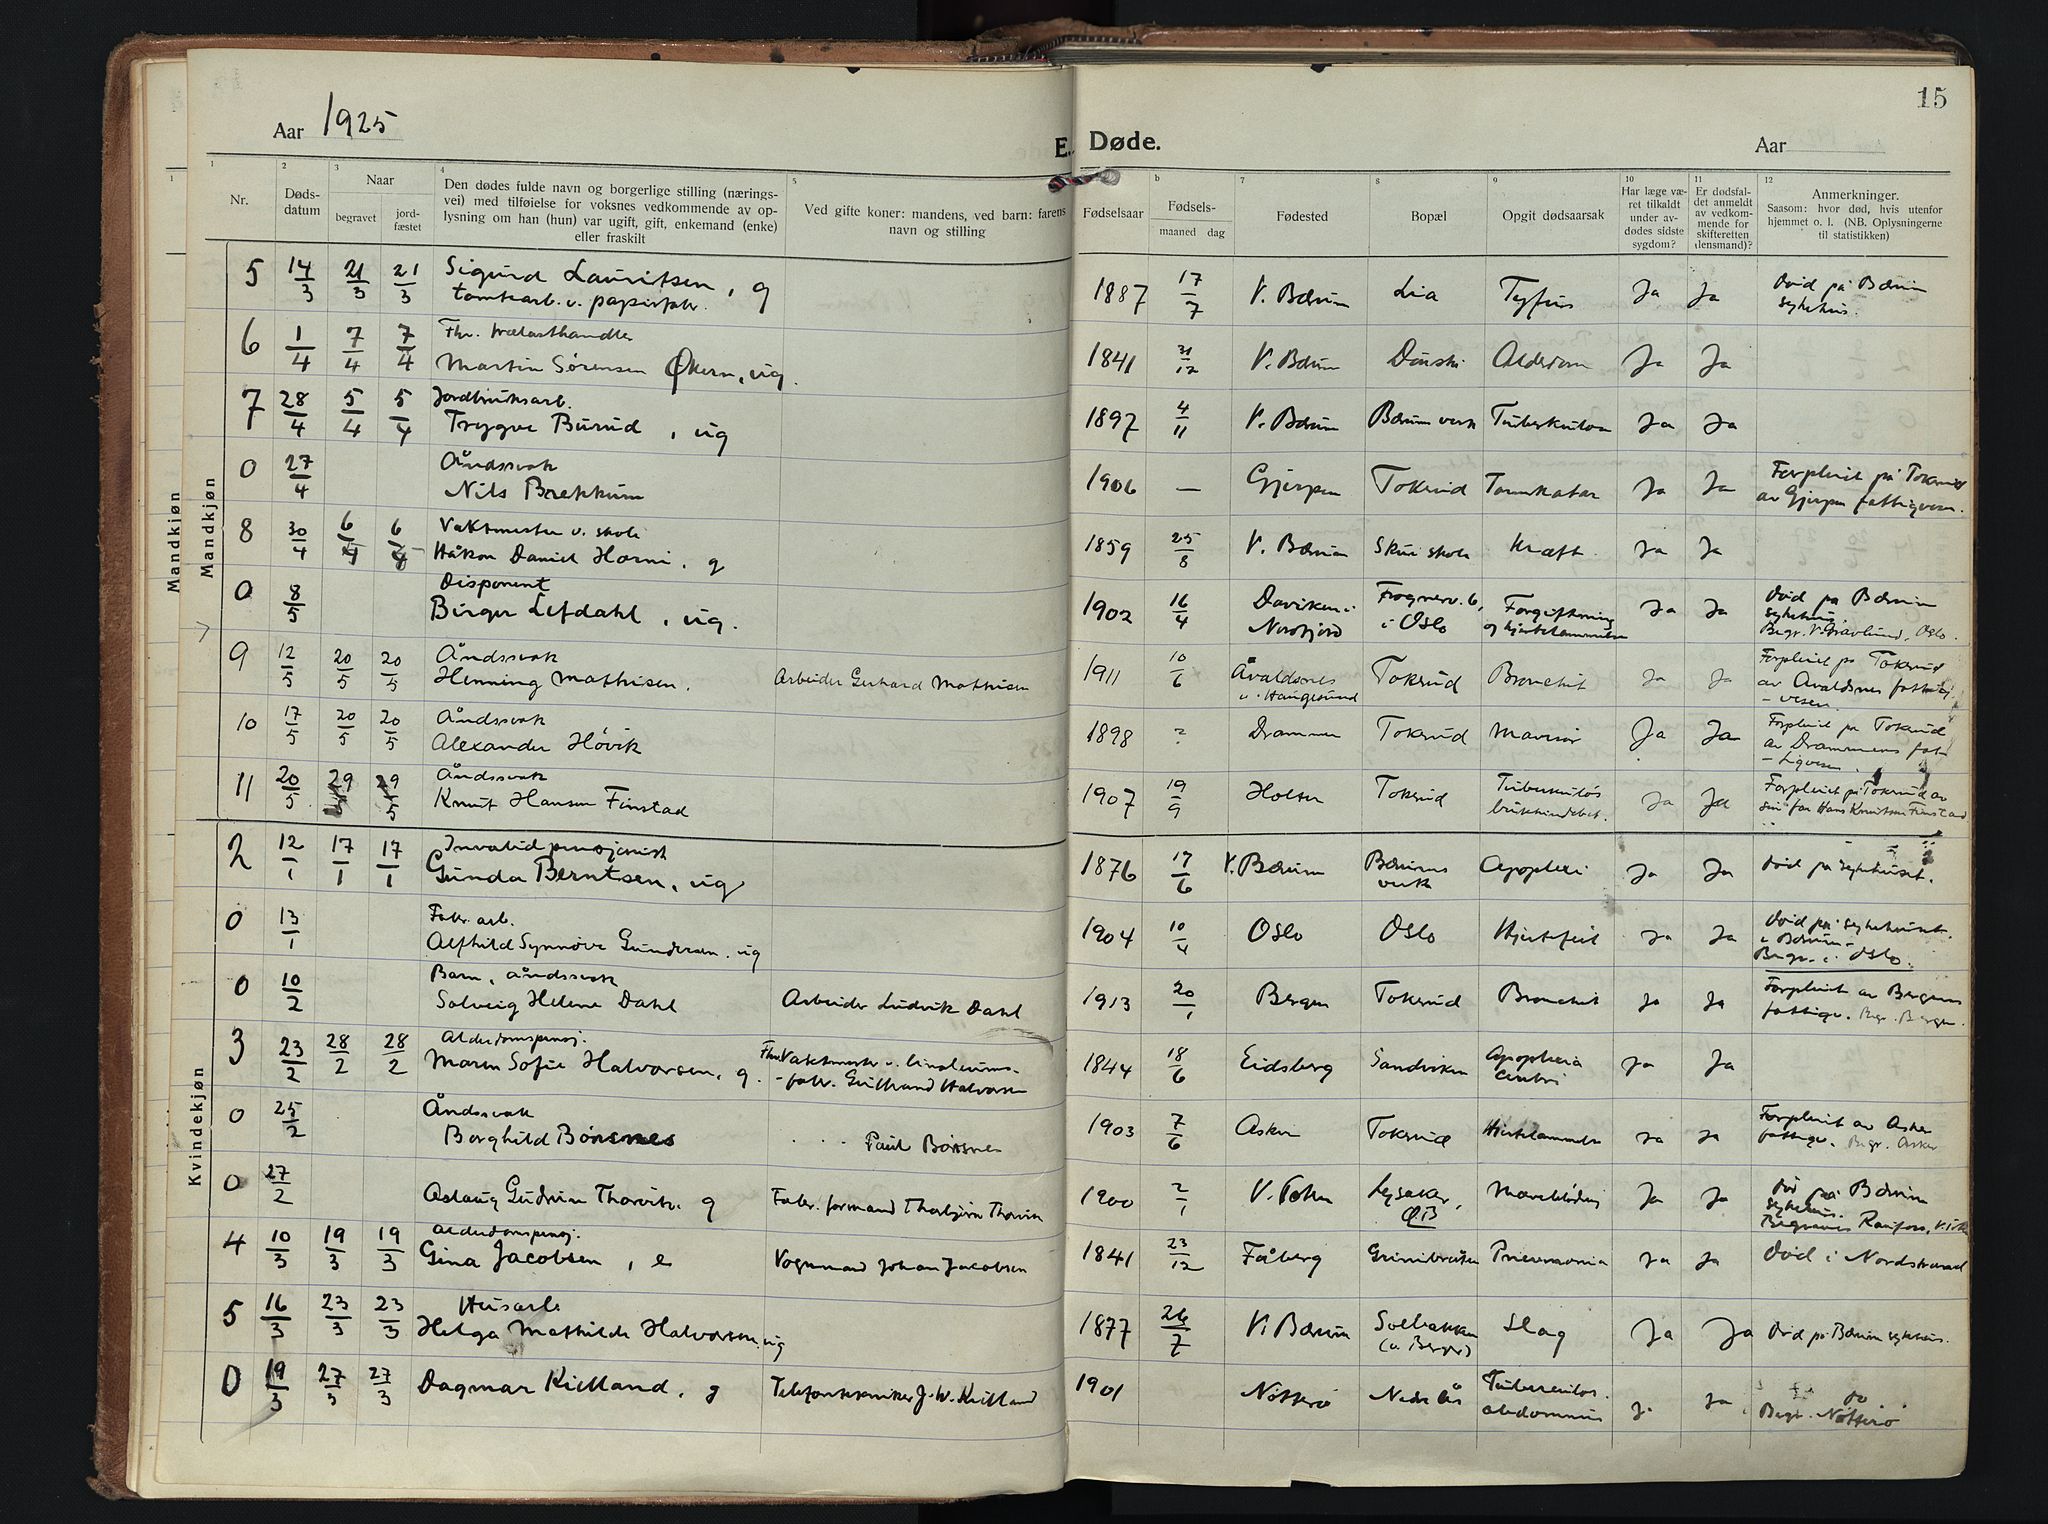 Aar 1925
E. Døde.
Aar
15
Mandkjøn
Mandkjøn
Kvindekjøn
1 2 3 4 5 b 7 8 9 10 11 12
Nr.
Døds-
datum
Naar
begravet
jord-
fæstet
Den dødes fulde navn og borgerlige stilling (nærings-
vei) med tilføielse for voksnes vedkommende av op-
lysning om han (hun) var ugift, gift, enkemand (enke)
eller fraskilt
Ved gifte koner: mandens, ved barn: farens
navn og stilling
Fødselsaar
Fødsels-
maaned dag
Fødested
Bopæl
Opgit dødsaarsak
Har læge væ-
ret tilkaldt
under av-
dødes sidste
sygdom?
Er dødsfal-
det anmeldt
av vedkom-
mende for
skifteretten
(lensmand)?
Anmerkninger.
Saasom: hvor død, hvis utenfor
hjemmet o. l. (NB. Oplysningerne
til statistikken)
5 14/3 21/3 21/3 Sigurd Lauritsen, g 1887 17/7 V. Bærum Lia Tyfus Ja Ja Død på Bærum
tomtearb. v. papirfabr. sykehus.
6 1/4 7/4 7/4 Fhv. trælasthandler
Martin Sørensen Økern, ug. 1841 31/12 V. Bærum Alderdom Ja Ja
7 28/4 5/4 5/4 Jordbruksarb.
Trygve Burud, ug 1897 4/11 V. Bærum Bærum verk Tuberkulose Ja Ja
0 27/4 Åndssvak
Nils Brekkum 1906 — Gjerpen Tokerud Tarmkatar Ja Ja Forpleiet på Tokerud
av Gjerpen fattigvesen.
8 30/4 6/4 6/4 Vaktmester v. skole
Håkon Daniel Horni, g 1859 25/8 V. Bærum Skui skole Kræft Ja Ja
0 8/5 Disponent
Birger Lefdahl, ug. 1902 16/4 Daviken i Frognerv. 6, Forgiftning Ja Ja Død på Bærum
Nordfjord i Oslo og hjertelammelse sykehus.
Begr. V. Gravlund, Oslo.
9 12/5 20/5 20/5 Åndssvak
Henning Mathisen. Arbeider Gerhard Mathisen 1911 10/6 Avaldsnes Tokerud Bronchit Ja Ja Forpleiet på Tokerud
v. Haugesund av Avaldsnes fattig-
-vesen.
10 17/5 20/5 20/5 Åndssvak
Alexander Høvik 1898 ? Drammen Tokerud Mavesår Ja Ja Forpleiet på Tokerud
av Drammens fat-
-tigvesen.
11 20/5 29 29/5 Åndssvak
Knut Hansen Finstad 1907 19/9 Holsen Tokerud Tuberkuløs Ja Ja Forpleiet på Tokerud av
bukhindebet. sin far Hans Knutsen Finstad
2 12/1 17/1 17/1 Invalidpensjonist
Gunda Berntsen, ug 1876 17/6 V. Bærum Bærums Apoplexi Ja Ja Død på sykehuset.
verk
0 13/1 Fabr. arb.
Alfhild Synnøve Gundersen. ug 1904 10/4 Oslo Oslo Hjertefeil Ja Ja Død på sykehuset.
i Bærum -
Begr. i Oslo.
0 10/2 Barn, åndssvak
Solveig Helene Dahl Arbeider Ludvik Dahl 1913 20/1 Bergen Tokerud Bronchit Ja Ja Forpleiet av Bergens
fattigv. Begr. Bergen.
3 23/2 28/2 28/2 Alderdomspensj.
Maren Sofie Halvorsen, g. Fhv. Vaktmester v. linoleums- 1844 18/6 Eidsberg Sandviken Apoplexia Ja Ja
-fabr. Gulbrand Halvorsen cerebri
0 25/2 Åndssvak
Borghild Børsnes Paul Børsnes 1903 7/6 Asker Tokerud Hjertelammelse Ja Ja Forpleiet av Asker
fattigv. Begr. Asker
0 27/2 Aslaug Gudrun Thorvik. g Fabr. formand Thorbjørn Thorvik 1900 2/1 V. Toten Lysaker, Maveblødning Ja Ja Død på Bærum
Ø.B sykehus.
Begraves Raufoss, V. Toten
4 10/3 19/3 19/3 Alderdomspensj.
Gina Jacobsen, e Vognmand Johan Jacobsen 1841 23/12 Fåberg Grinibråten Pneumonia Ja Ja Død i Nordstrand
5 16/3 23/3 23/3 Husarb.
Helga Mathilde Halvorsen, ug 1877 26/7 V. Bærum Solbakken Slag Ja Ja Død på Bærum sykehus.
(v. Berger)
0 19/3 27/3 27/3 Dagmar Kielland, g Telefontekniker J. W. Kielland 1901 Nøtterø Tuberculos. Ja Ja do
abdominis Begr. Nøtterø